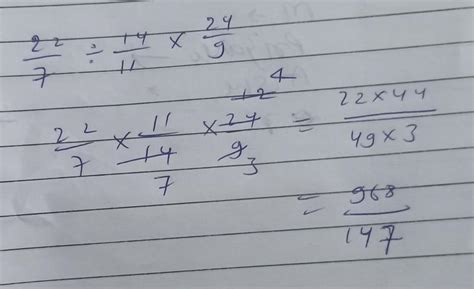 22/7 ÷ 14/11 × 24/9
22/7 × 11/14 7 × 12 4 24/9 3 = 22×44/49×3
= 968/147